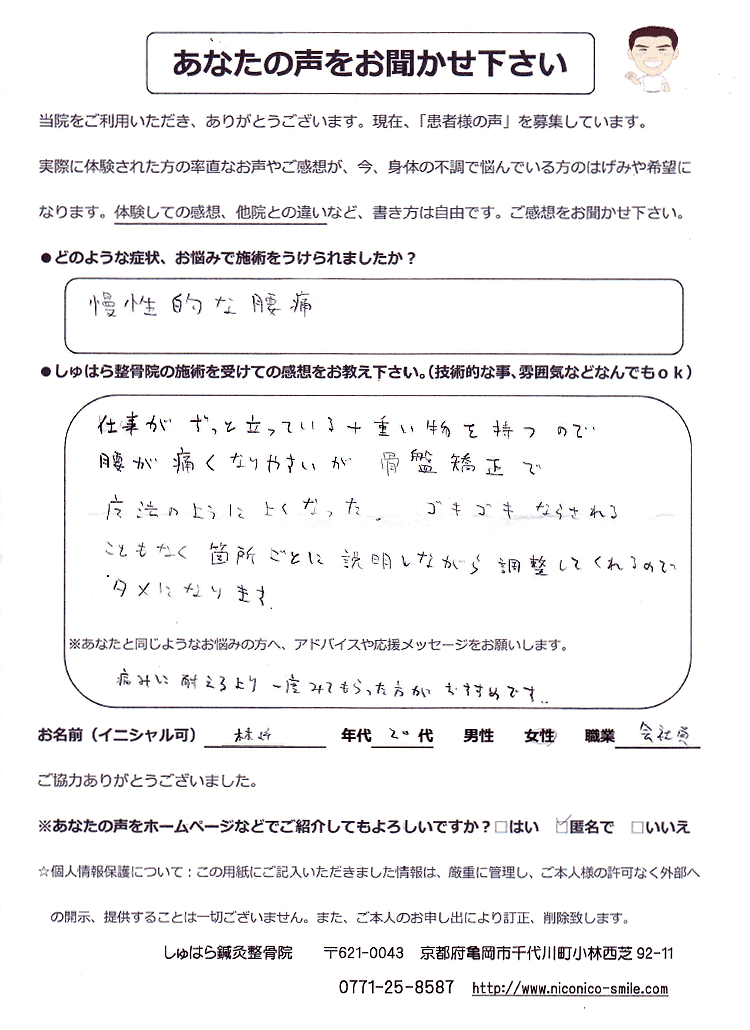 あなたの声をお聞かせ下さい
当院をご利用いただき、ありがとうございます。現在、「患者様の声」を募集しています。
実際に体験された方の率直なお声やご感想が、今、身体の不調で悩んでいる方のはげみや希望に
なります。体験しての感想、他院との違いなど、書き方は自由です。ご感想をお聞かせ下さい。
●どのような症状、お悩みで施術をうけられましたか？
慢性的な腰痛
●しゅはら整骨院の施術を受けての感想をお教え下さい。（技術的な事、雰囲気などなんでもｏｋ）
仕事がずっと立っている＋重い物を持つので
腰が痛くなりやすいが 骨盤矯正で
魔法のようによくなった。 ゴキゴキならされる
こともなく箇所ごとに説明しながら調整してくれるので
タメになります。
※あなたと同じようなお悩みの方へ、アドバイスや応援メッセージをお願いします。
痛みに耐えるより一度みてもらった方がおすすめです..
お名前（イニシャル可） 年代 20代 男性 女性 職業 会社員
ご協力ありがとうございました。
※あなたの声をホームページなどでご紹介してもよろしいですか？□はい ☑匿名で □いいえ
☆個人情報保護について：この用紙にご記入いただきました情報は、厳重に管理し、ご本人様の許可なく外部へ
の開示、提供することは一切ございません。また、ご本人のお申し出により訂正、削除致します。
しゅはら鍼灸整骨院 〒621-0043 京都府亀岡市千代川町小林西芝 92-11
0771-25-8587 http://www.niconico-smile.com